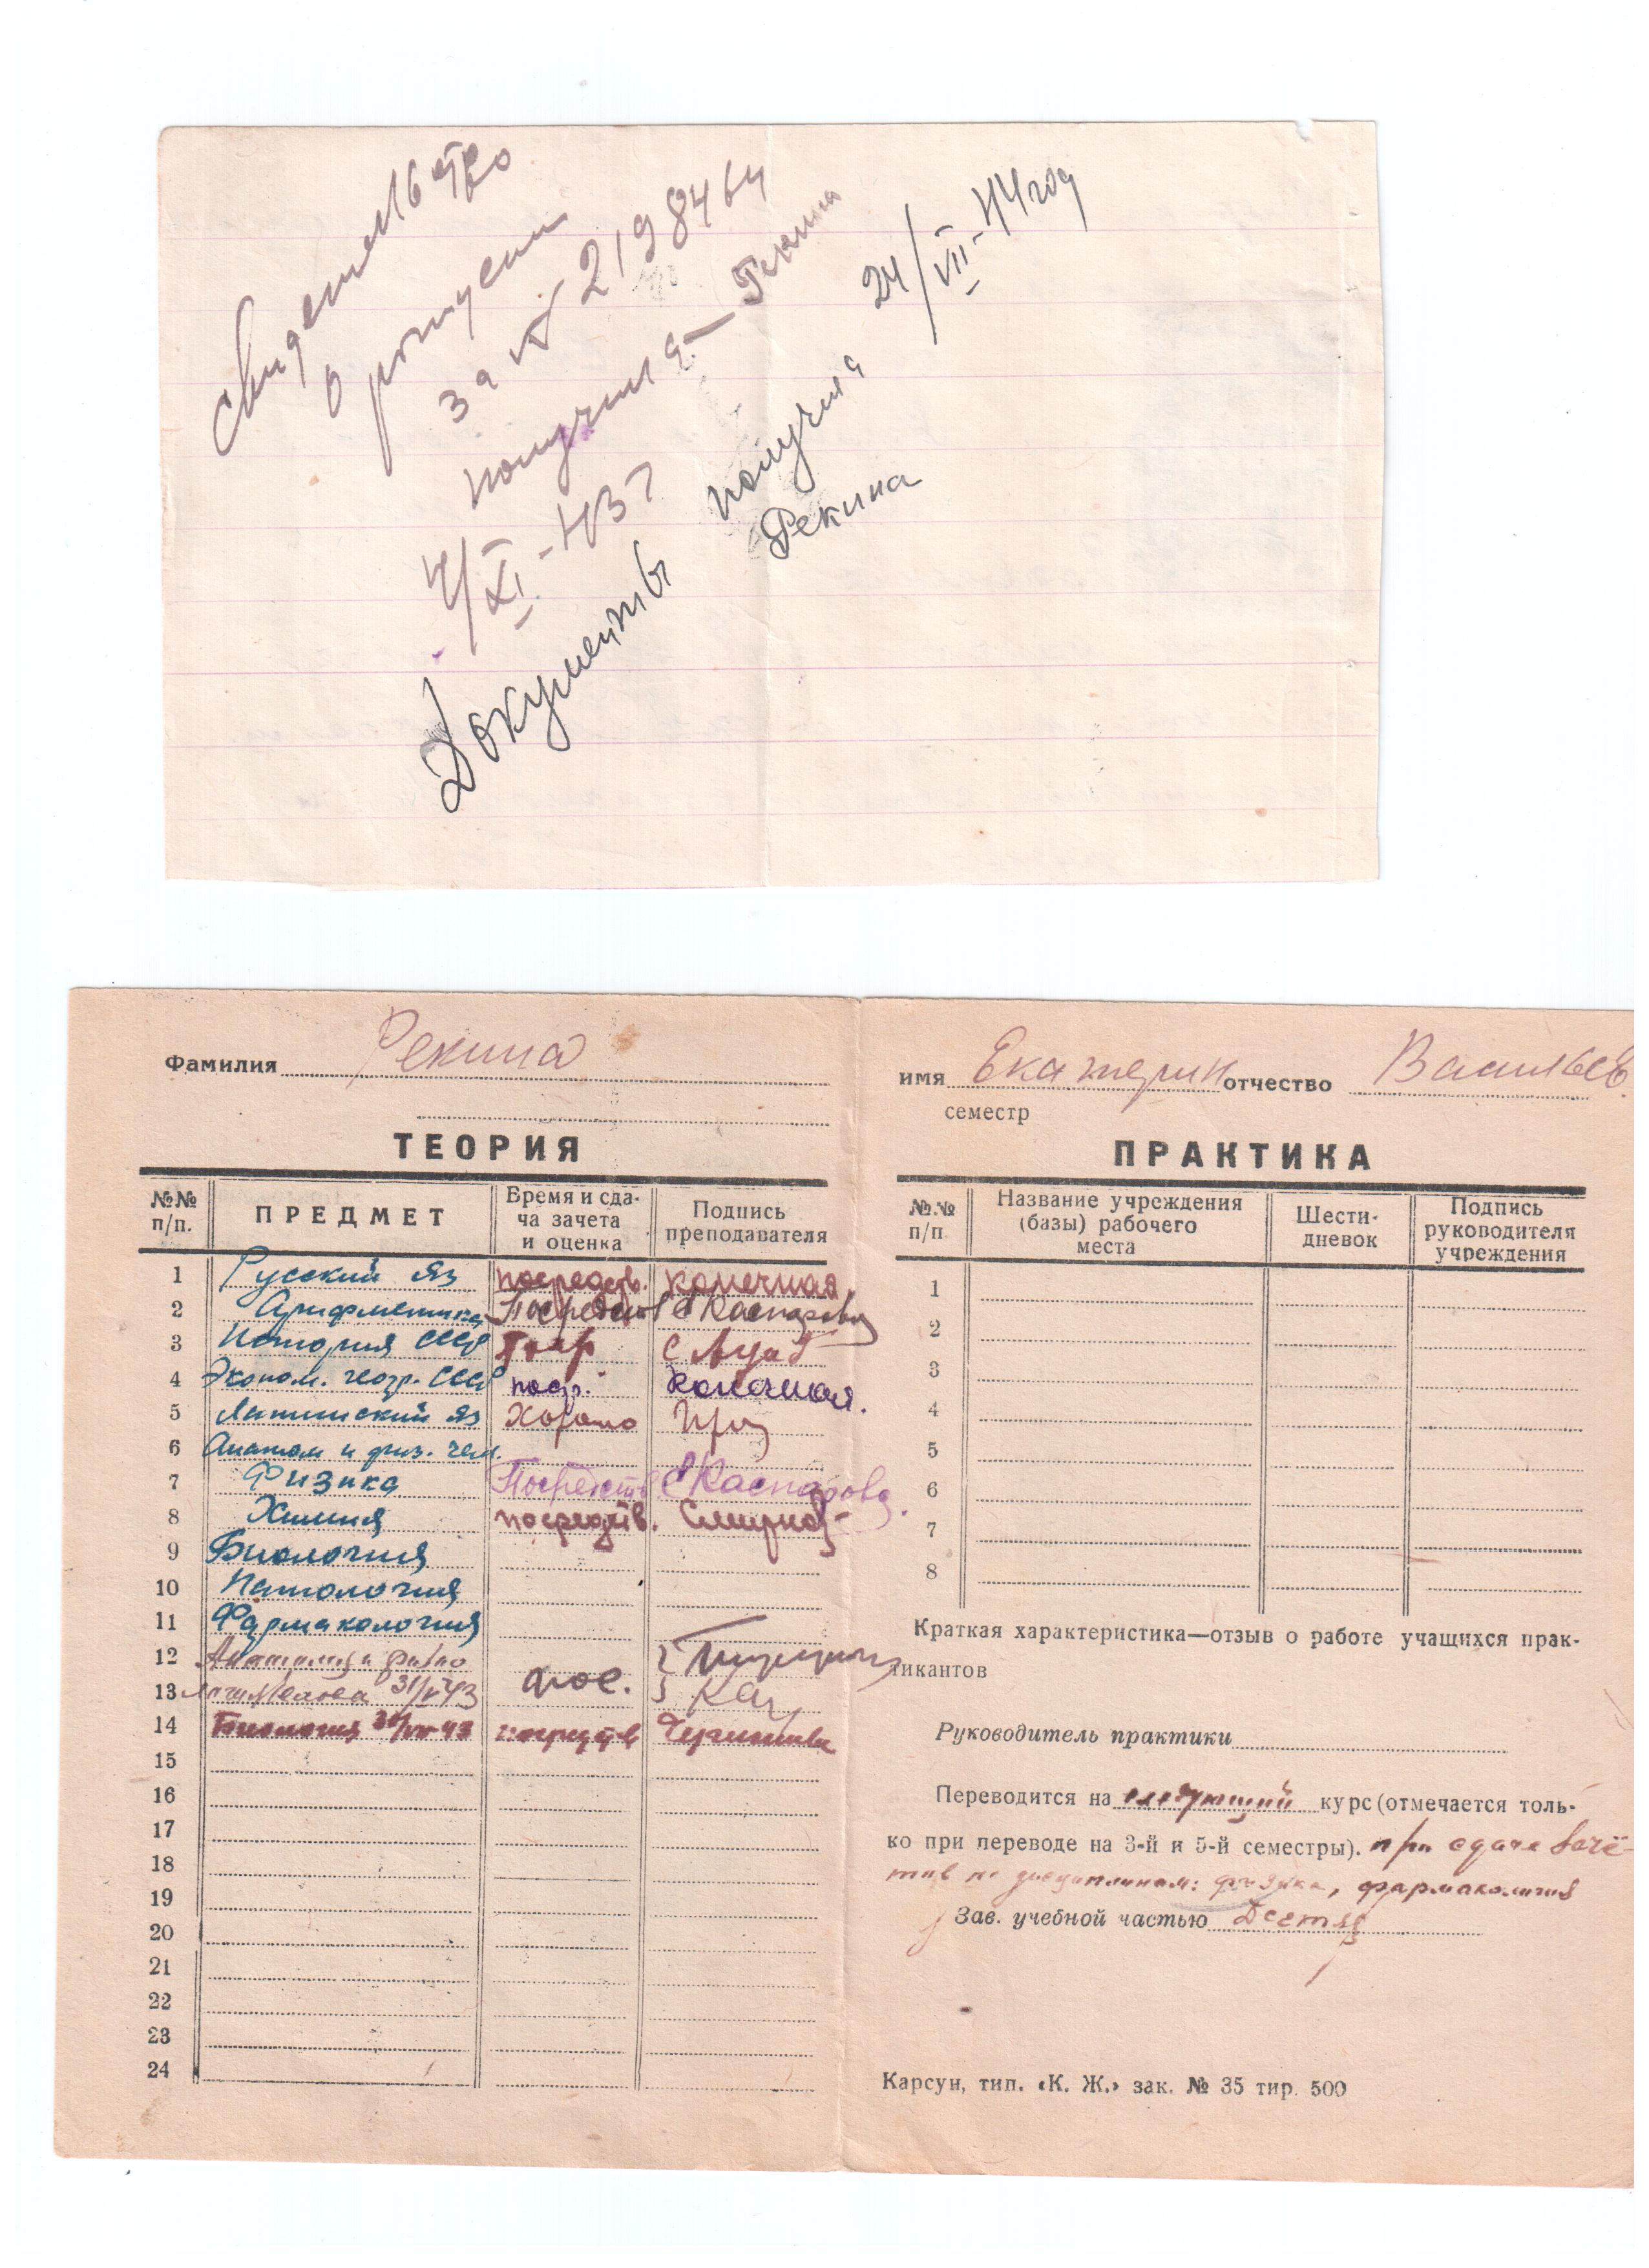 свидетельство
о рождении
за № 2198464
получила — Рекина
4/XI-43 г
Документы получила 24/VII-44 год
Рекина
Фамилия Рекина
имя Екатерин отчество Васильев.
семестр
ТЕОРИЯ
№№ п/п. ПРЕДМЕТ Время и сда- Подпись
ча зачета преподавателя
и оценка
1 Русский яз посредств. Конечная
2 Арифметика Посредств ЕКаспарова
3 История СССР
4 Эконом. геогр. СССР поср. Конечная.
5 Латинский яз Хорошо
6 Анатом и физ. чел.
7 Физика Посредств ЕКаспарова.
8 Химия посредств. Смирнов
9 Биология
10 Патология
11 Фармакология
12 Анатомия и физио
13 логия человека 31/V 43 пос.
14 Биология 43 посредств
15
16
17
18
19
20
21
22
23
24
ПРАКТИКА
№.№ п/п Название учреждения Шести- Подпись
(базы) рабочего дневок руководителя
места учреждения
1
2
3
4
5
6
7
8
Краткая характеристика—отзыв о работе учащихся прак-
тикантов
Руководитель практики
Переводится на следующий курс (отмечается толь-
ко при переводе на 3-й и 5-й семестры). при сдаче зачё-
тов по дисциплинам: физика, фармакология
Зав. учебной частью
Карсун, тип. «К. Ж.» зак. № 35 тир. 500